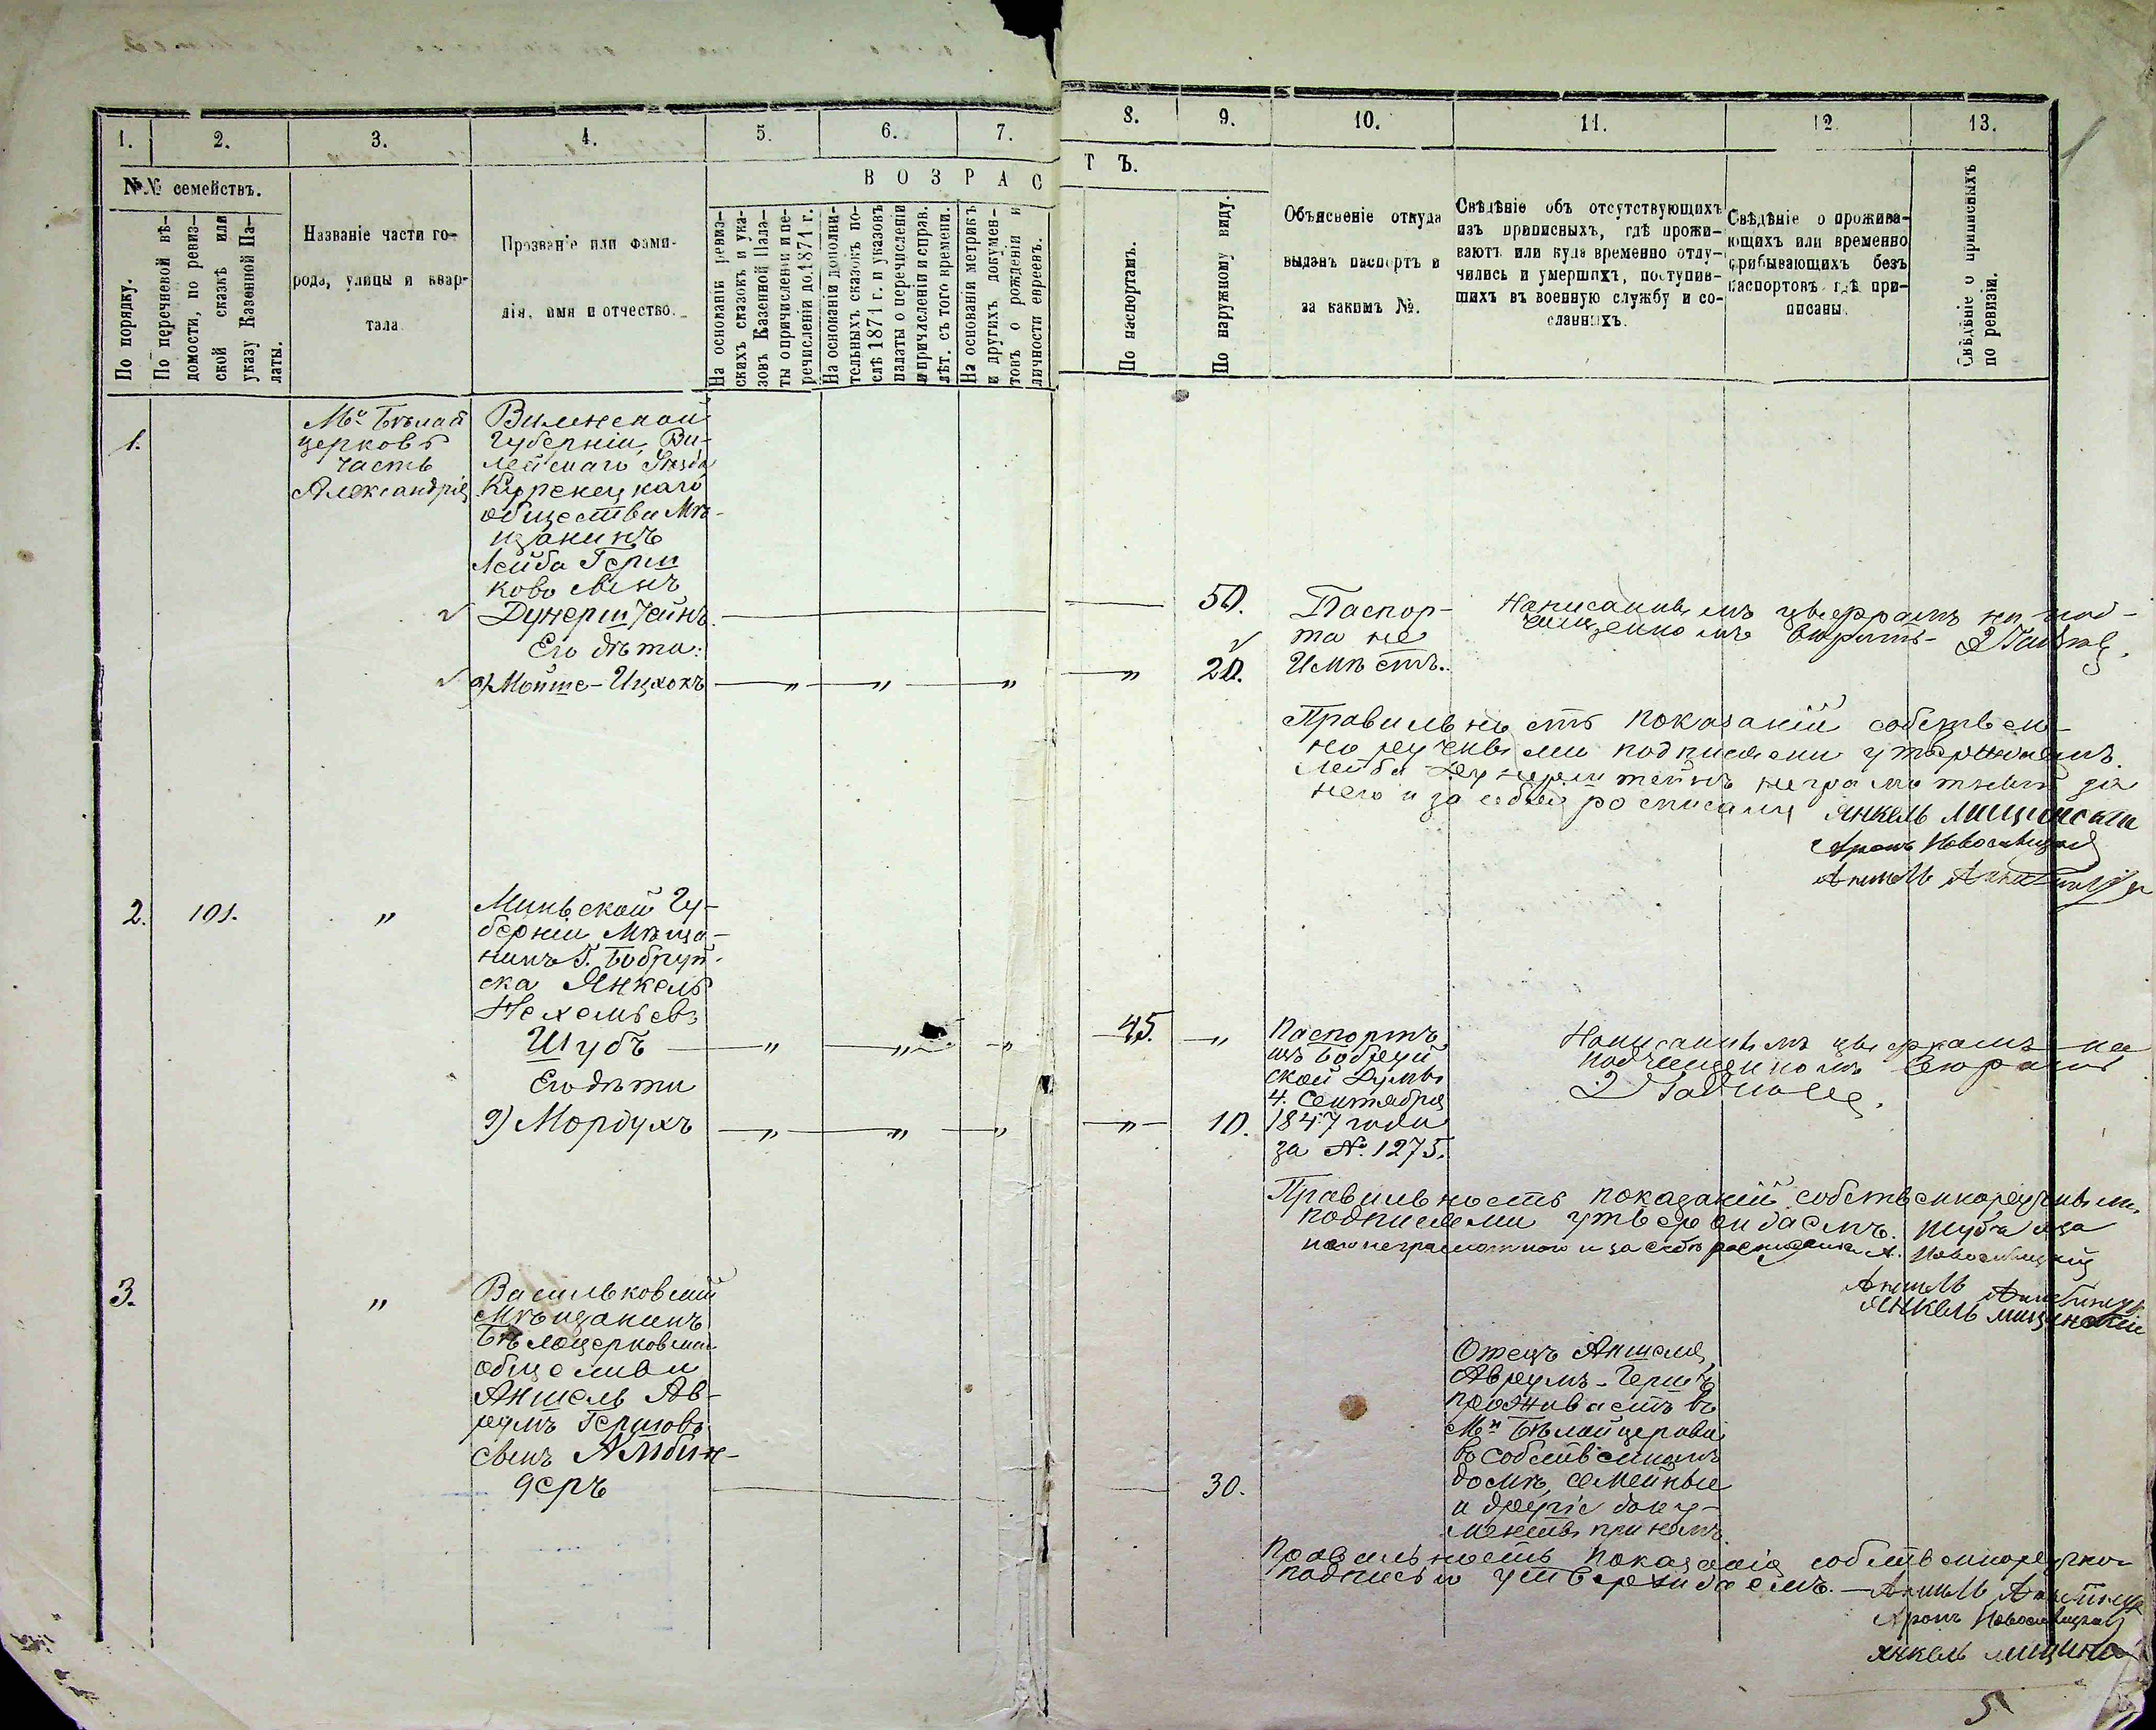 1. 2. 3. 4. 5. 6. 7. 8. 9. 10. 11. 12 13.
№№ семействъ.
ВОЗРАСТЪ.
По порядку.
По перечневой вѣ-
домости, по ревиз-
ской сказкѣ или
указу Казенной Па-
латы.
Названіе части го-
рода, улицы и квар-
тала
Прозваніе или фами-
лія, имя и отчество.
На основаніи ревиз-
скихъ сказокъ и ука-
зовъ Казенной Пала-
ты о причисленіи и пе-
речисленіи до 1871 г.
На основаніи дополни-
тельныхъ сказокъ по-
слѣ 1871 г. и указовъ
палаты о перечисленіи
и причисленіи и справ.
лѣт. съ того времени.
На основаніи метрикъ
и другихъ докумен-
товъ о рожденіи и
личности евреевъ.
По паспортамъ.
По наружному виду.
Объясненіе откуда
выданъ паспортъ и
за какимъ №.
Свѣдѣніе объ отсутствующихъ
изъ приписныхъ, гдѣ прожи-
ваютъ или куда временно отлу-
чились и умершихъ, поступив-
шихъ въ военную службу и со-
сланныхъ.
Свѣдѣніе о прожива-
ющихъ или временно
прибывающихъ безъ
паспортовъ гдѣ при-
писаны.
Свѣдѣніе о приписныхъ
по ревизіи.
1.
Мѣ Бѣлая
церковь
часть
Александрія
Виленской
Губерніи, Ви-
лейскаго Уѣзда
Куренецкаго
общества Мѣ-
щанинъ
Лейба Герш
ково вынъ
Дунерштейнъ
Его дѣти:
а) Мойше-Ицхокъ " " " "
50.
20.
Паспор-
та не
Имѣетъ.
Написаннымъ цыфрамъ на под-
чищенномъ вѣрить-
Правильность показаній собствен-
но ручными подписями утверждаемъ.
Лейба Дунерштейнъ неграмотный за
него и за себя росписали Янкель Мищинскій
Аронъ Новоселицкій
Аншель
2. 101. "
Минской Гу-
берніи Мѣща-
нинъ Г. Бобруй-
ска Янкель
Нехемьев
Шубъ " " "
Его дѣти
а) Мордухъ " " " "
45. "
10.
Паспортъ
изъ Бобруй
ской Думы
4. Сентября
1847 года
за №. 1275.
Написаннымъ цыфрамъ на
подчищенномъ вѣрить
Правильность показаній собственноручными
подписями утверждаемъ. Шубъ а за
него неграмотного и за себя росписались А. Новоселицкій
Аншель
Янкель Мищинскій
3. "
Васильковскій
Мѣщанинъ
Бѣлоцерковскаго
общества
Аншель Ав-
румъ Гершковъ
сынъ Альбин-
деръ
30.
Отецъ Аншеля,
Аврумъ-Гершъ
проживаетъ въ
Мѣ Бѣлойцеркви
въ собственномъ
домѣ, семейные
и другіе доку-
менты при немъ.
Правильность показанія собственноручно
подписью утверждаемъ. - Аншель
Аронъ Новоселицкій
Янкель Мищинс
5